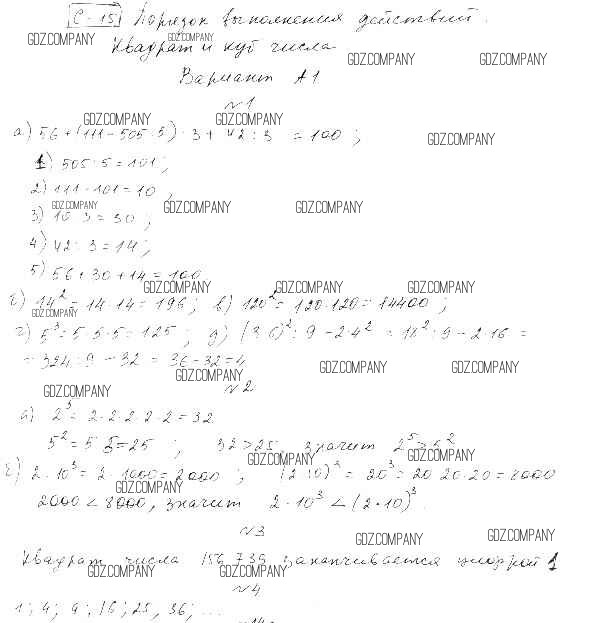 С-15 Порядок выполнения действий.
GDZ.COMPANY GDZ.COMPANY
Квадрат и куб числа
GDZ.COMPANY GDZ.COMPANY
Вариант А1
№1
GDZ.COMPANY GDZ.COMPANY
а) 56 + (111 - 505 : 5) · 3 + 42 : 3 = 100 ;
GDZ.COMPANY
1) 505 : 5 = 101 ;
2) 111 - 101 = 10 ;
GDZ.COMPANY GDZ.COMPANY GDZ.COMPANY
3) 10 · 3 = 30 ;
4) 42 : 3 = 14 ;
5) 56 + 30 + 14 = 100
GDZ.COMPANY GDZ.COMPANY GDZ.COMPANY
б) 14² = 14 · 14 = 196 ; в) 120² = 120 · 120 = 14400 ;
GDZ.COMPANY
г) 5³ = 5 · 5 · 5 = 125 ; д) (3·6)² : 9 - 2·4² = 18² : 9 - 2·16 =
= 324 : 9 - 32 = 36 - 32 = 4
GDZ.COMPANY GDZ.COMPANY GDZ.COMPANY
№2
GDZ.COMPANY
а) 2⁵ = 2 · 2 · 2 · 2 · 2 = 32
5² = 5 · 5 = 25 ; 32 > 25 значит 2⁵ > 5²
GDZ.COMPANY GDZ.COMPANY
б) 2 · 10³ = 2 · 1000 = 2000 ; (2·10)³ = 20³ = 20·20·20 = 8000
GDZ.COMPANY
2000 < 8000, значит 2 · 10³ < (2·10)³.
№3
GDZ.COMPANY GDZ.COMPANY
Квадрат числа 156 739 заканчивается цифрой 1
GDZ.COMPANY GDZ.COMPANY
№4
1 ; 4 ; 9 ; 16 ; 25 ; 36 ; ...
GDZ.COMPANY GDZ.COMPANY